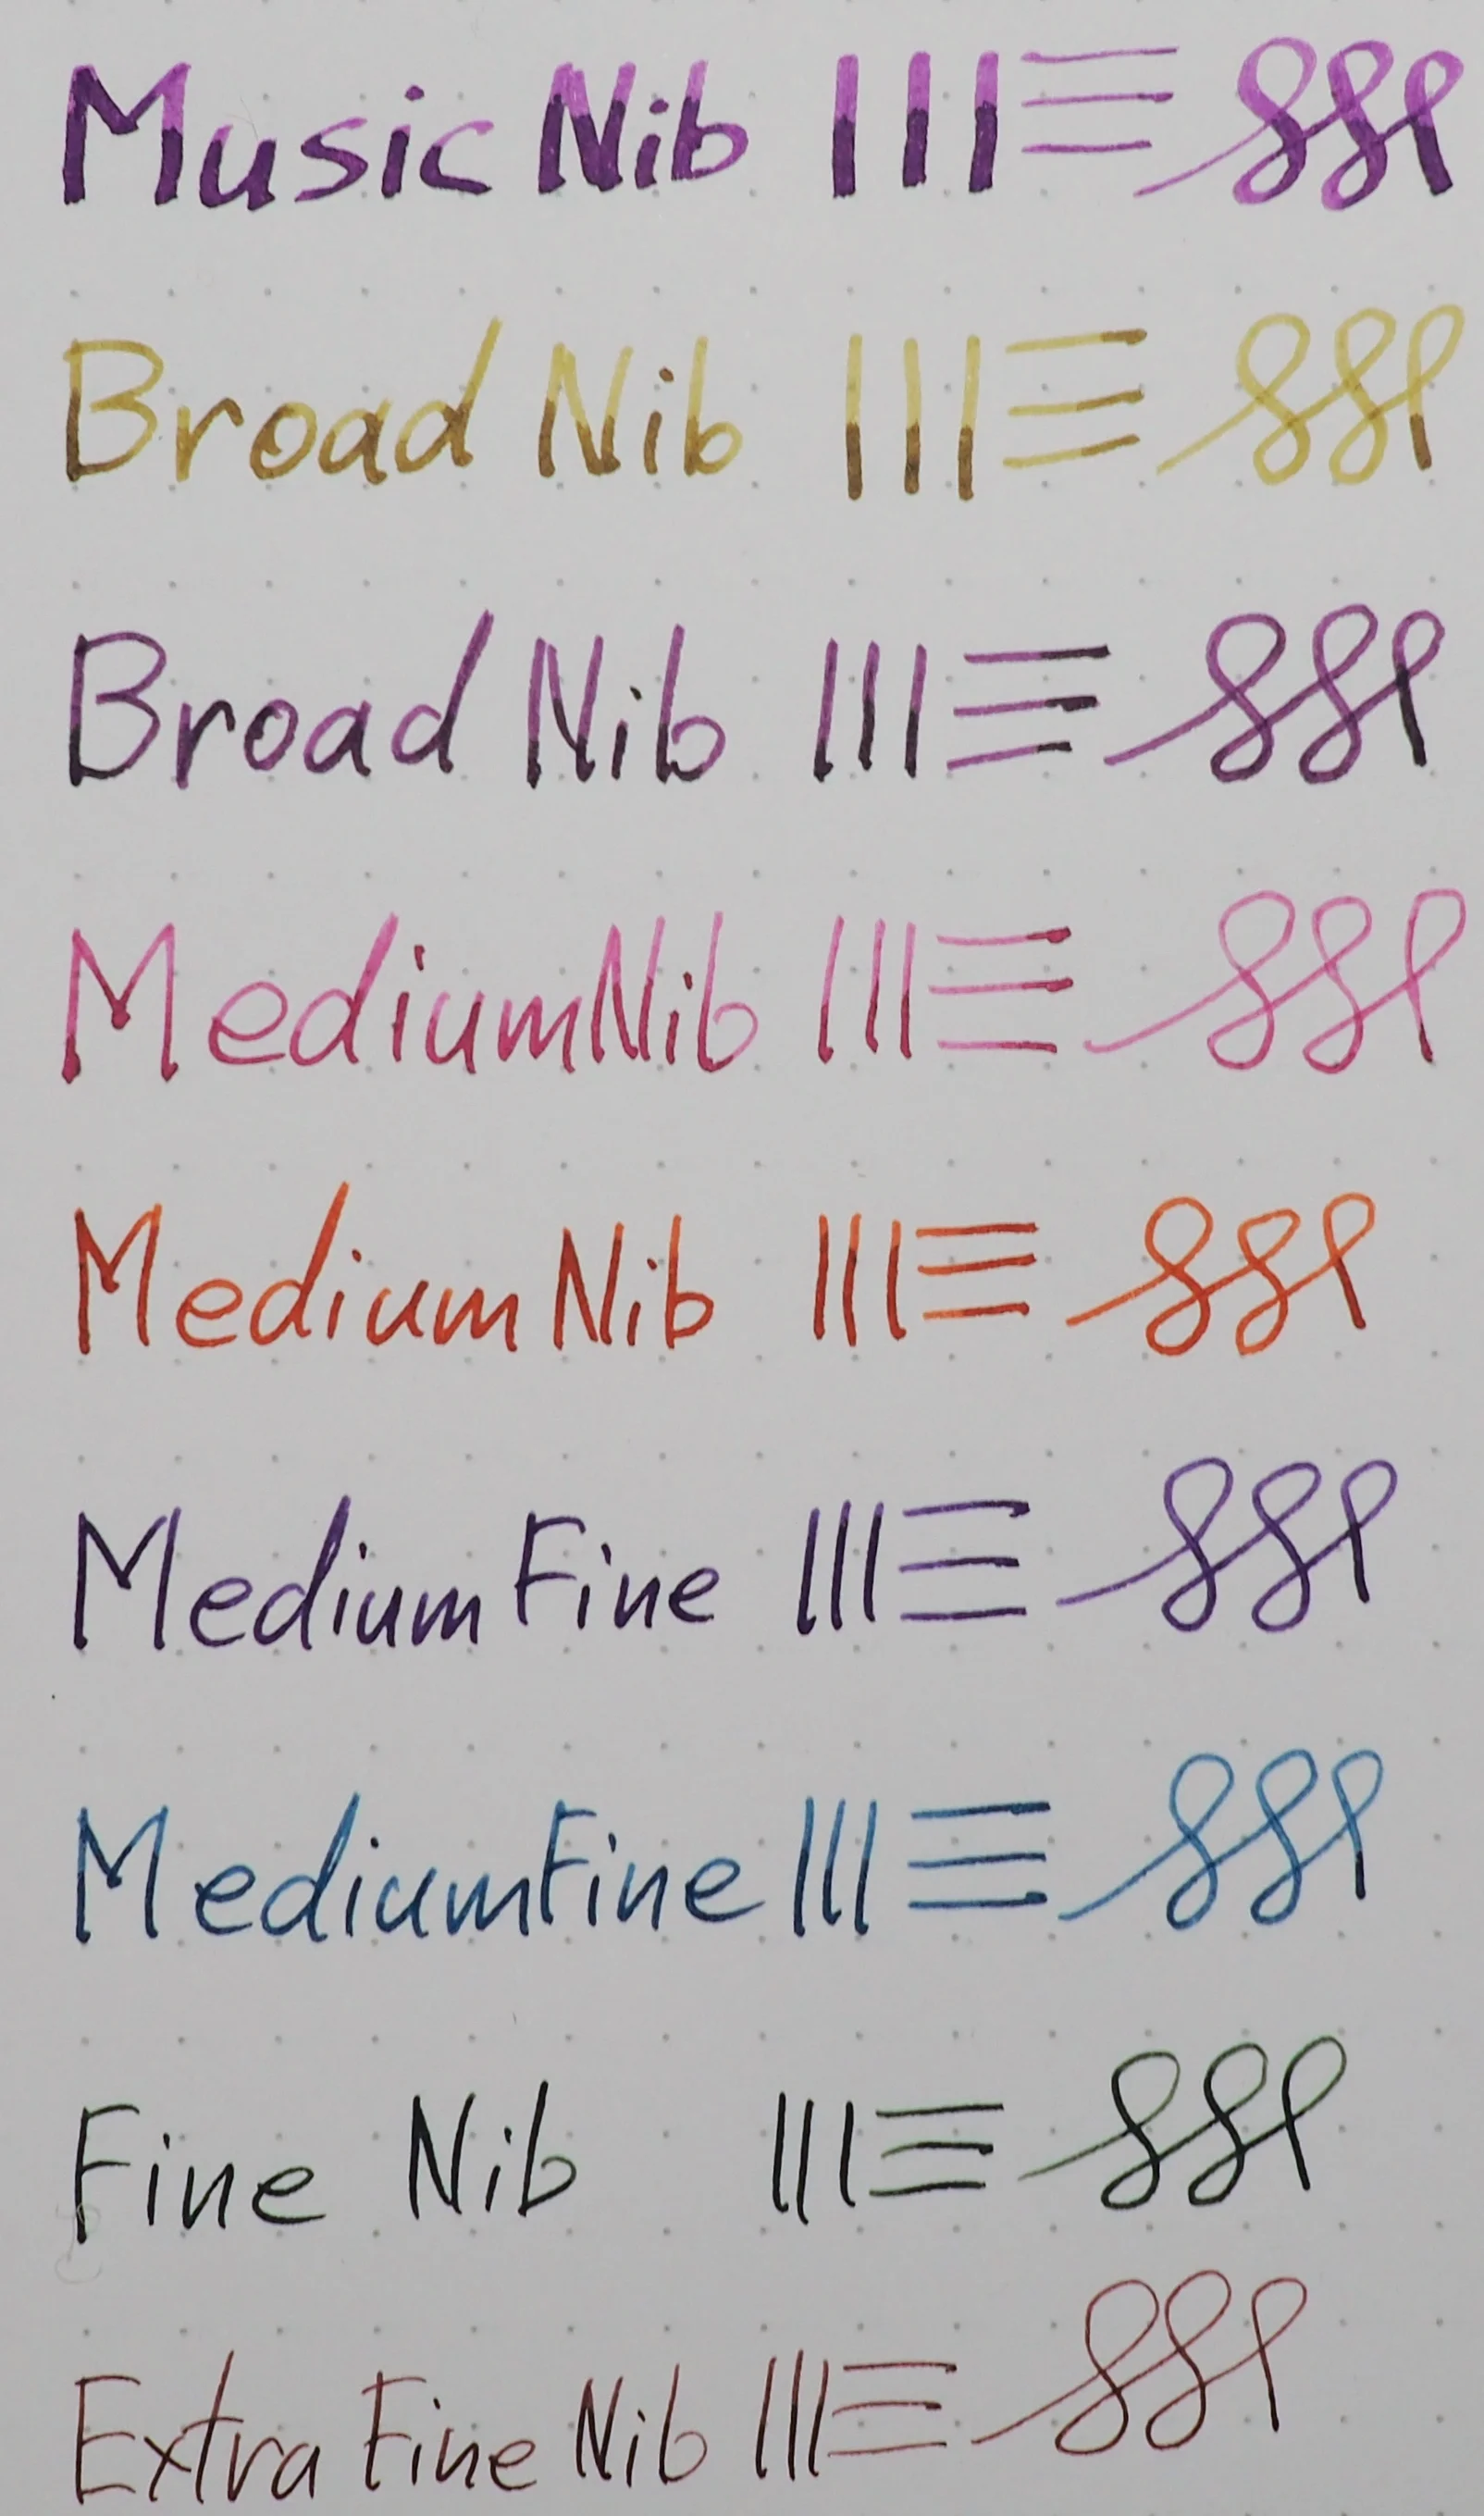 Music Nib
Broad Nib
Broad Nib
Medium Nib
Medium Nib
Medium Fine
Medium Fine
Fine Nib
Extra Fine Nib